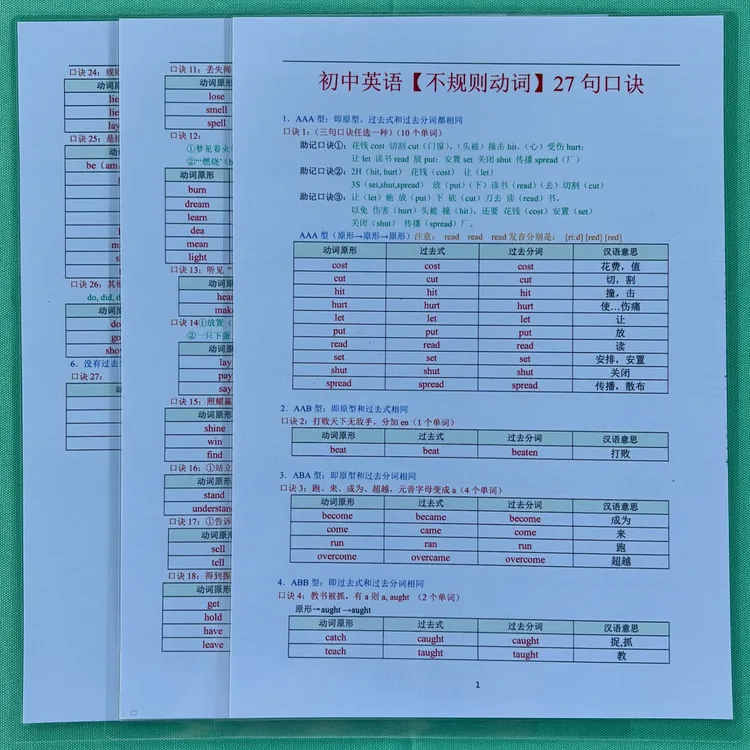 初中英语【不规则动词】27句口诀
1．AAA 型：即原型、过去式和过去分词都相同
口诀 1：(三句口诀任选一种)(10 个单词)
助记口诀①： 花钱 cost 切割 cut (门窗)，(头被) 撞击 hit、(心) 受伤 hurt；
让 let 读书 read 放 put；安置 set 关闭 shut 传播 spread (厂)
助记口诀②： 2H (hit, hurt) 花钱 (cost) 让 (let)
3S (set,shut,spread) 放 (put) (下) 读书 (read) (去) 切割 (cut)
助记口诀③： 让 (let) 他 放 (put) 下 砍 (cut) 刀去 读 (read) 书，
以免 伤害 (hurt) 头被 撞 (hit)，还要 花钱 (cost) 安置 (set)
关闭 (shut) 传播 (spread) 厂。
AAA 型 (原形→原形→原形) 注意： read read read 发音分别是： [ri:d] [red] [red]
动词原形 过去式 过去分词 汉语意思
cost cost cost 花费，值
cut cut cut 切，割
hit hit hit 撞，击
hurt hurt hurt 使…伤痛
let let let 让
put put put 放
read read read 读
set set set 安排，安置
shut shut shut 关闭
spread spread spread 传播，散布
2．AAB 型：即原型和过去式相同
口诀 2：打败天下无敌手，分加 en (1 个单词)
动词原形 过去式 过去分词 汉语意思
beat beat beaten 打败
3．ABA 型：即原型和过去分词相同
口诀 3：跑、来、成为、超越，元音字母变成 a (4 个单词)
动词原形 过去式 过去分词 汉语意思
become became become 成为
come came come 来
run ran run 跑
overcome overcame overcome 超越
4．ABB 型：即过去式和过去分词相同
口诀 4：教书被抓，有 a 则 a, aught （2 个单词）
原形→aught →aught
动词原形 过去式 过去分词 汉语意思
catch caught caught 捉,抓
teach taught taught 教
1
口诀 11：丢失
动词原
lose
smell
spell
口诀 12：
①梦见着火
②"燃烧"
动词原
burn
dream
learn
dea
mean
light
口诀 13：听见
动词原
hear
make
口诀 14①放置
②一只下蛋
动词原
lay
pay
say
口诀 15：照耀赢
动词原
shine
win
find
口诀 16：①站立
动词原
stand
understand
口诀 17：①告诉
动词原
sell
tell
口诀 18：得到握
动词原
get
hold
have
leave
口诀 24：规则
动词原
lie
lie
lay
口诀 25：是
动
be (am
口诀 26：其他
do, did, d
动词原
do
go
show
6．没有过去
口诀 27：